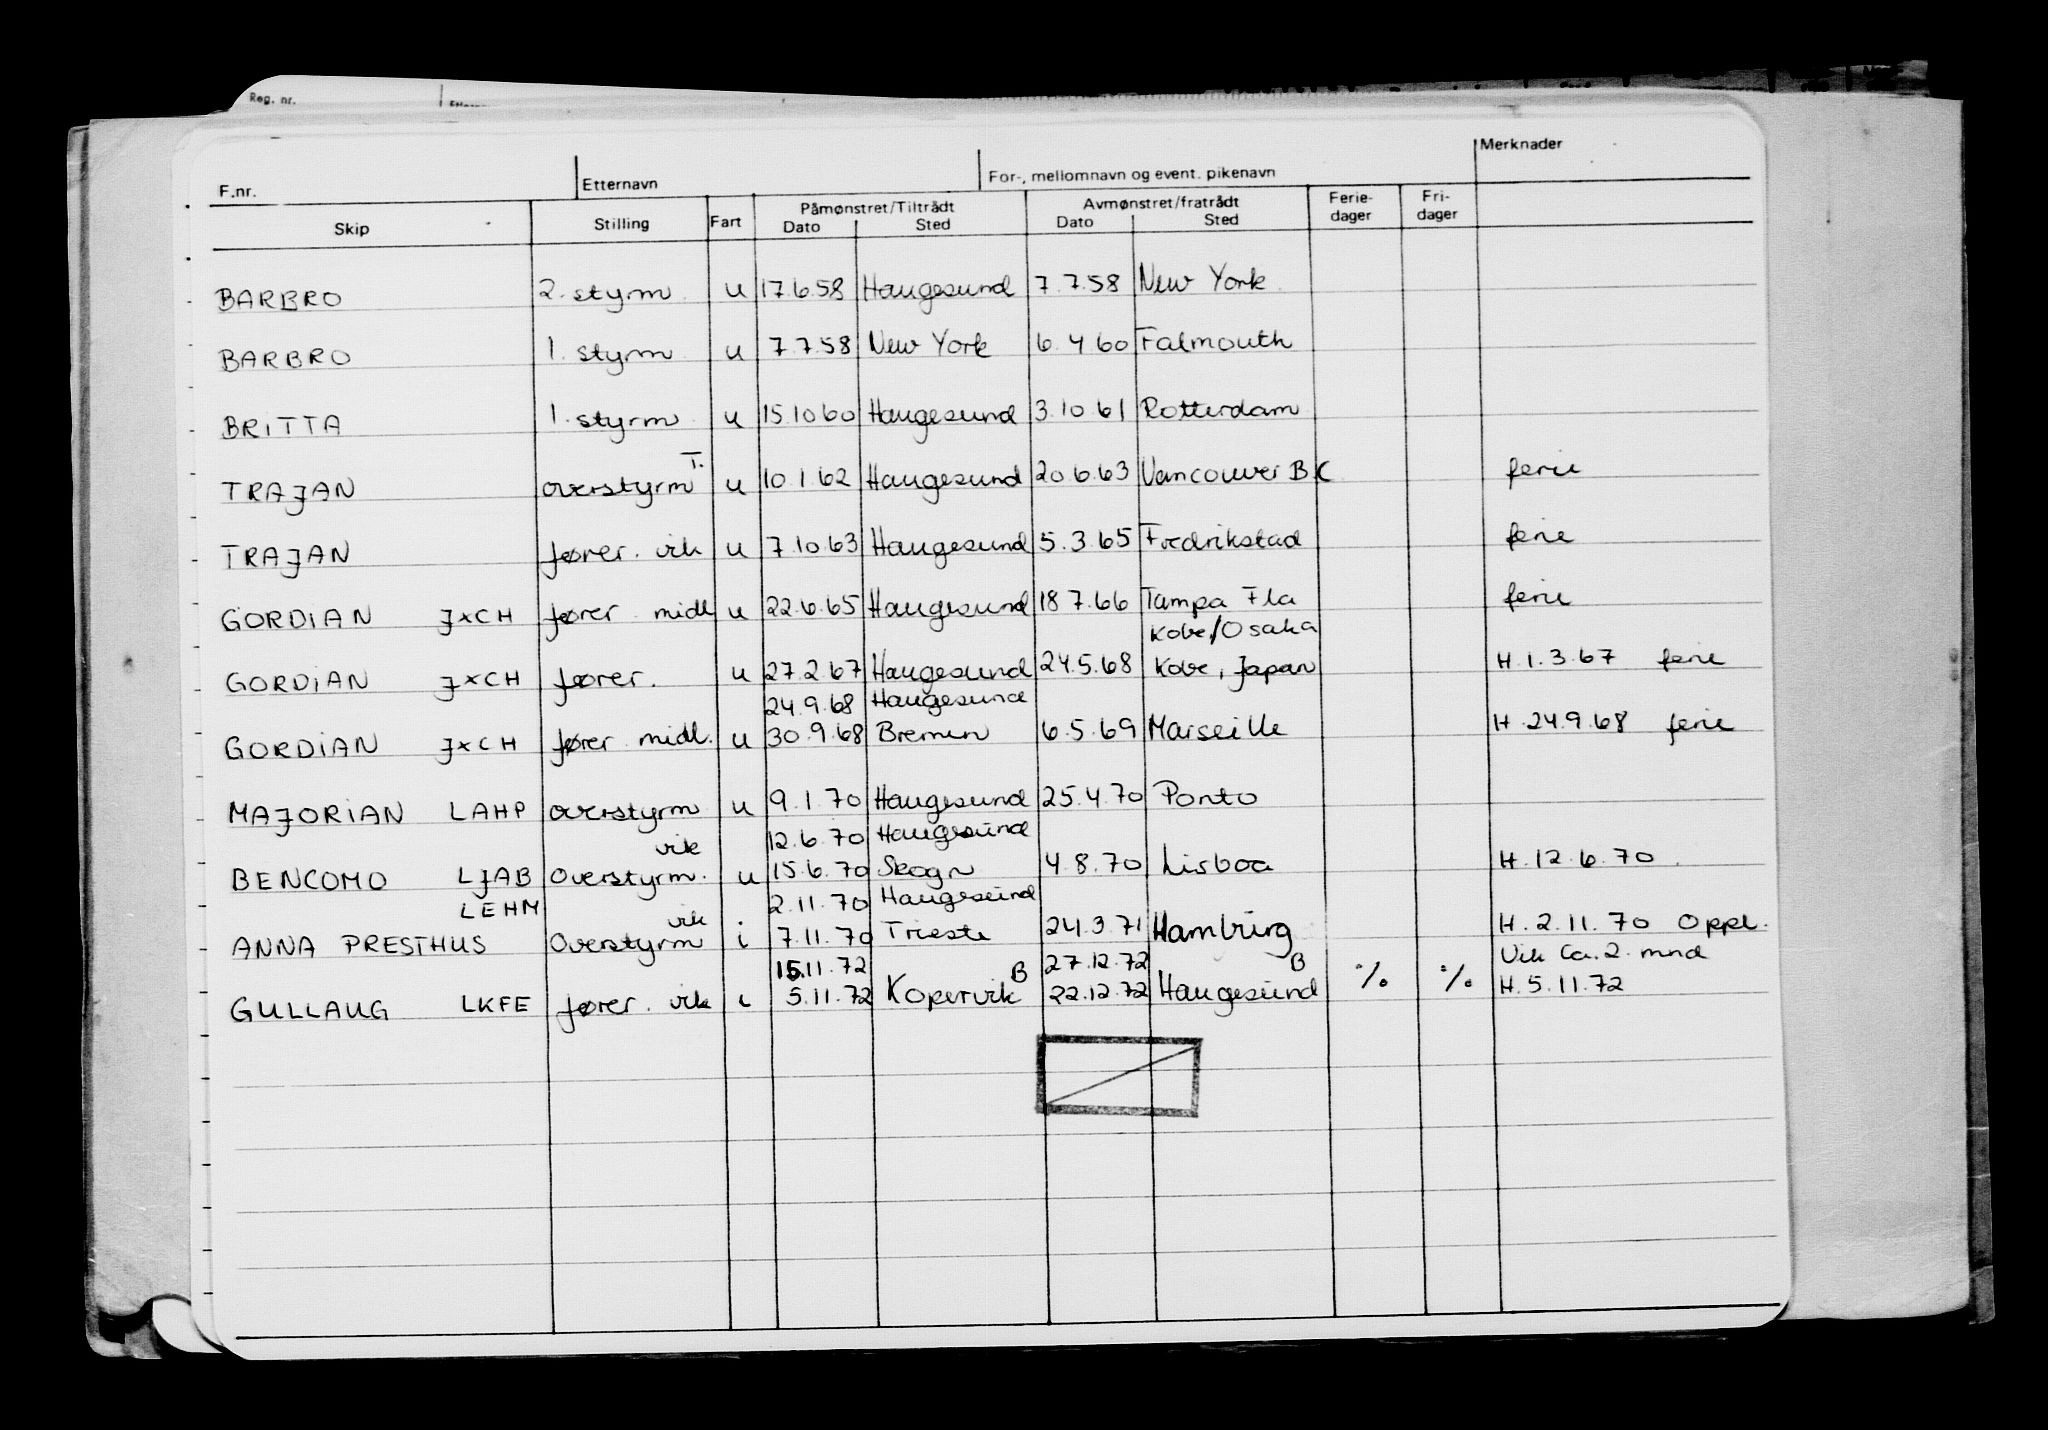 Reg. nr.
F.nr. Etternavn For-, mellomnavn og event. pikenavn Merknader
Skip Stilling Fart Påmønstret/Tiltrådt Dato Sted Avmønstret/fratrådt Dato Sted Ferie-dager Fri-dager
BARBRO 2. styrm u 17.6.58 Haugesund 7.7.58 New York
BARBRO 1. styrm u 7.7.58 New York 6.4.60 Falmouth
BRITTA 1. styrm u 15.10.60 Haugesund 3.10.61 Rotterdam
T.
TRAJAN overstyrm u 10.1.62 Haugesund 20.6.63 Vancouver BC ferie
TRAJAN fører. vik u 7.10.63 Haugesund 5.3.65 Fredrikstad ferie
GORDIAN JXCH fører midl u 22.6.65 Haugesund 18.7.66 Tampa Fla ferie
Kobe/Osaka
GORDIAN JXCH fører. u 27.2.67 Haugesund 24.5.68 Kobe, Japan H.1.3.67 ferie
24.9.68 Haugesund
GORDIAN JXCH fører midl. u 30.9.68 Bremen 6.5.69 Marseille H.24.9.68 ferie
MAJORIAN LAHP overstyrm u 9.1.70 Haugesund 25.4.70 Ponto
vik 12.6.70 Haugesund
BENCOMO LJAB overstyrm. u 15.6.70 Skogn 4.8.70 Lisboa H.12.6.70.
LEHM vik 2.11.70 Haugesund
ANNA PRESTHUS overstyrm i 7.11.70 Trieste 24.3.71 Hamburg H.2.11.70 Oppl.
15.11.72 B 27.12.72 B Vik Ca. 2. mnd
GULLAUG LKFE fører. vik i 5.11.72 Kopervik 22.12.72 Haugesund % % H.5.11.72